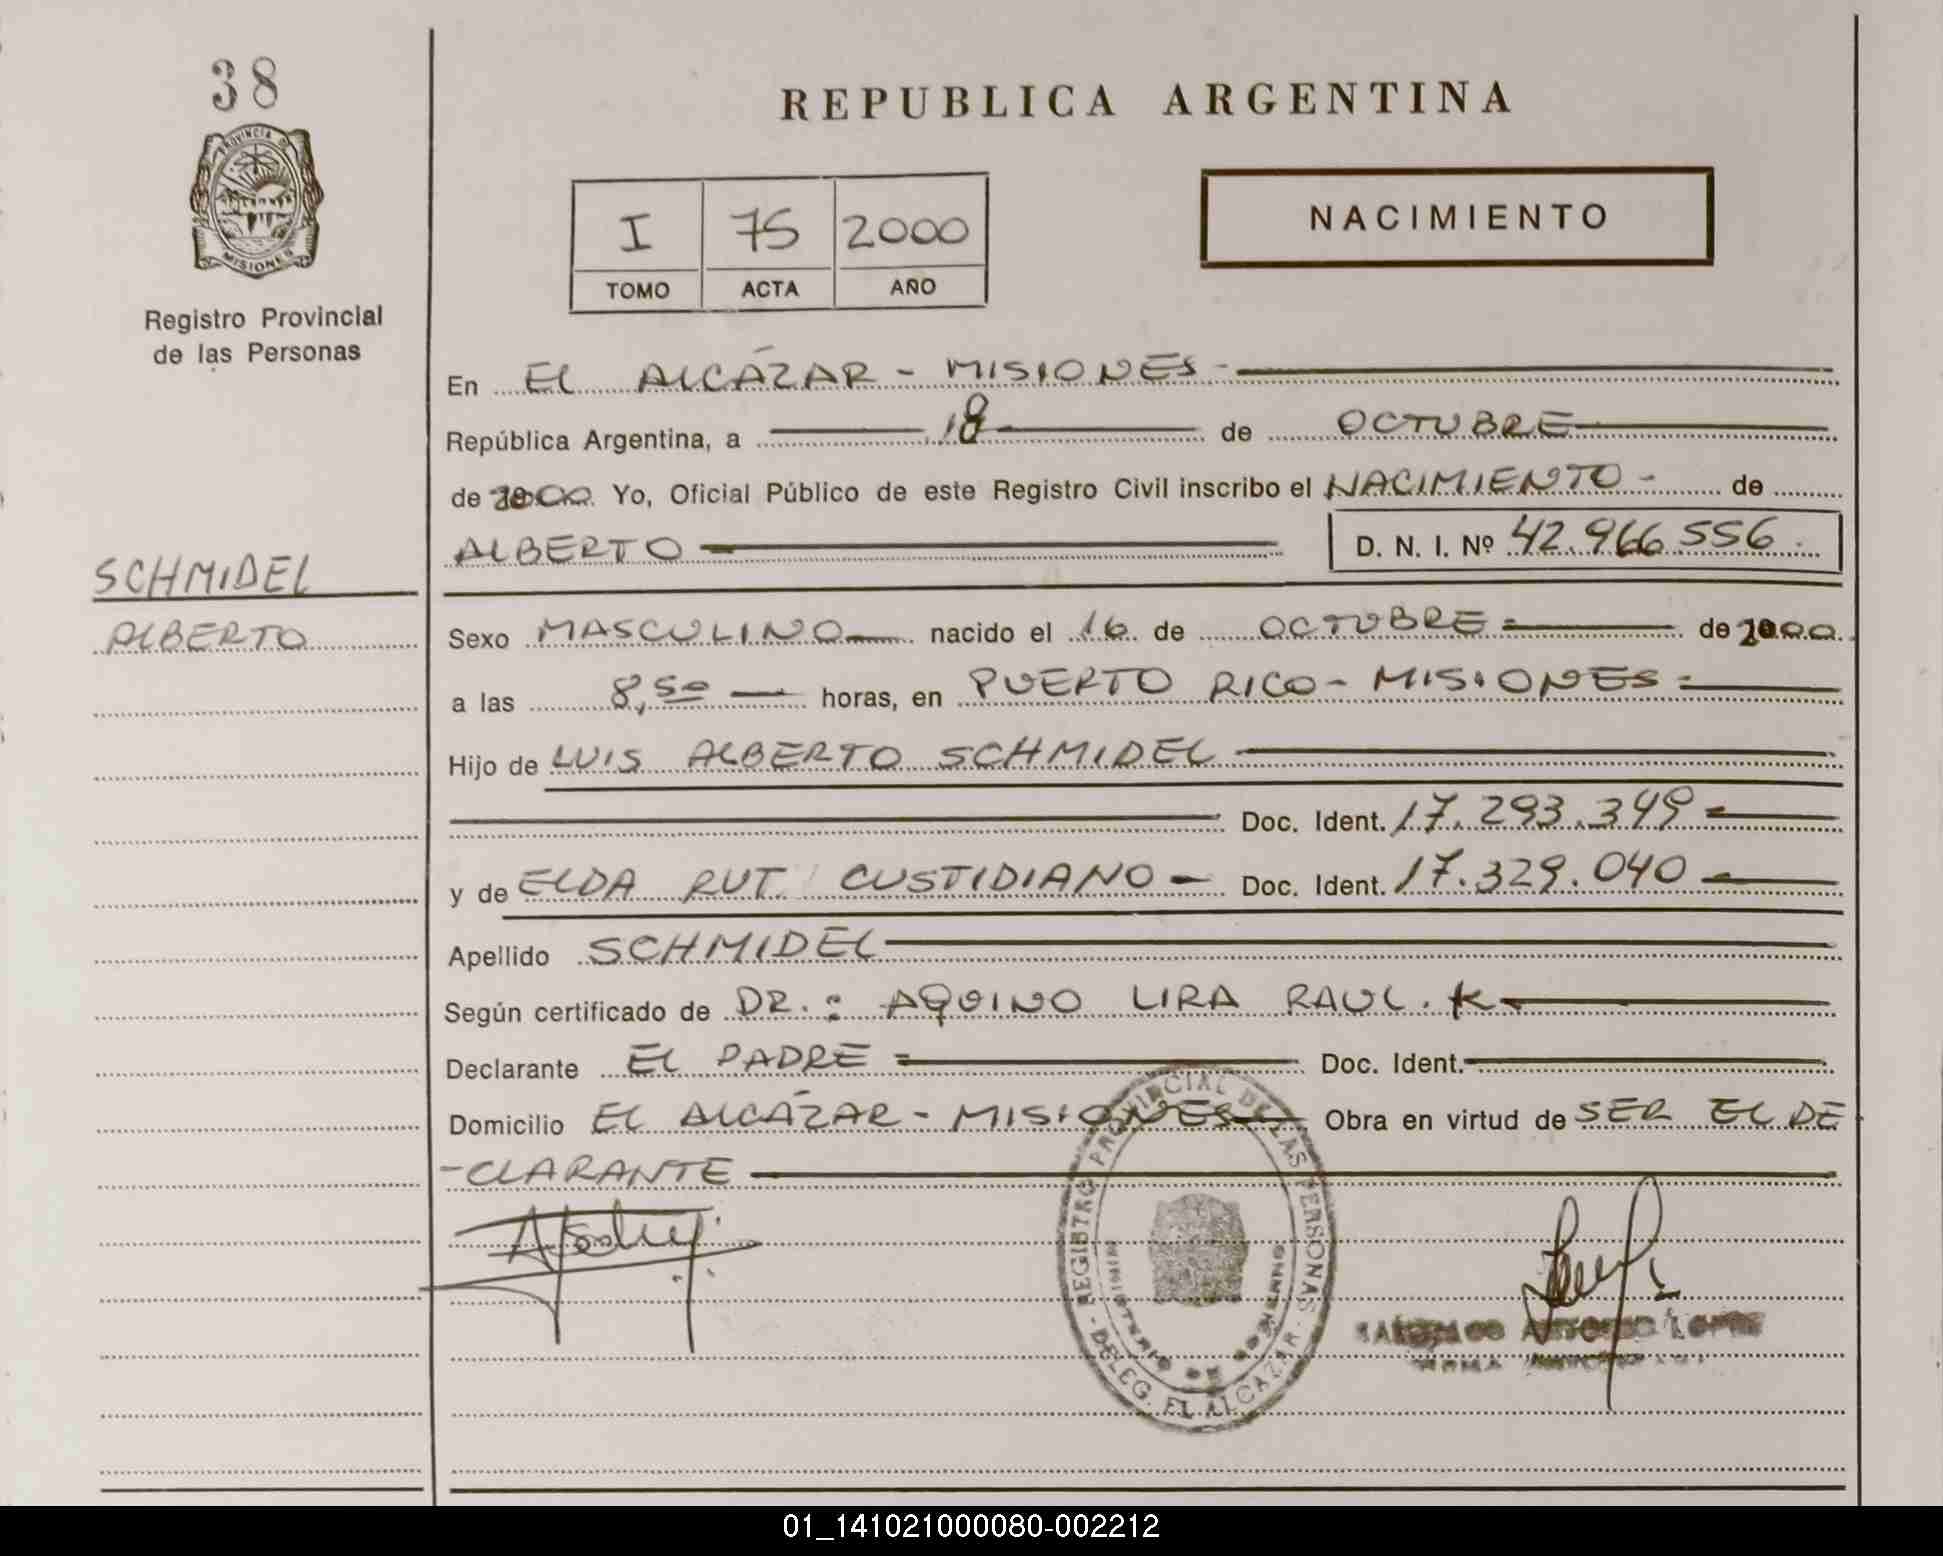 38
PROVINCIA DE
MISIONES
Registro Provincial
de las Personas
SCHMIDEL
ALBERTO
REPUBLICA ARGENTINA
I 75 2000
TOMO ACTA AÑO
NACIMIENTO
En EL ALCÁZAR - MISIONES -
República Argentina, a 18 de OCTUBRE
de 2000 Yo, Oficial Público de este Registro Civil inscribo el NACIMIENTO - de
ALBERTO D. N. I. Nº 42.966.556.
Sexo MASCULINO nacido el 16 de OCTUBRE de 2000
a las 8,50 horas, en PUERTO RICO - MISIONES
Hijo de LUIS ALBERTO SCHMIDEL
Doc. Ident. 17.293.349
y de ELDA RUT CUSTIDIANO Doc. Ident. 17.329.040
Apellido SCHMIDEL
Según certificado de DR.: AQUINO LIRA RAUL. K
Declarante EL PADRE Doc. Ident.
Domicilio EL ALCÁZAR - MISIONES Obra en virtud de SER EL DE
-CLARANTE
REGISTRO PROVINCIAL DE LAS PERSONAS
MINISTERIO DE GOBIERNO
- DELEG. EL ALCAZAR -
ANTONIO LOPEZ
01_141021000080-002212